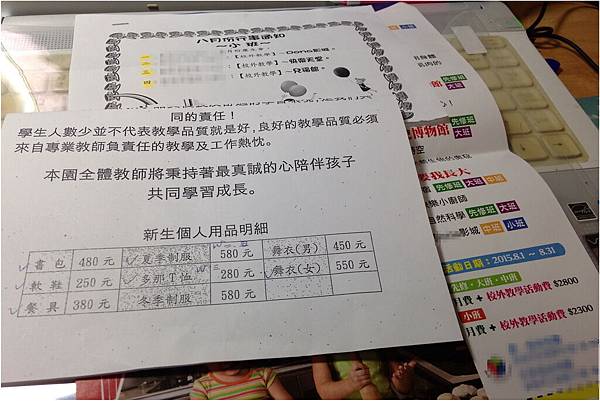 八月份行事通知
~小 班~
一 :【校外教學】~Dono影城。
三 :【校外教學】~
五 :【校外教學】~兒福館。
同的責任！
學生人數少並不代表教學品質就是好，良好的教學品質必須
來自專業教師負責任的教學及工作熱忱。
本園全體教師將秉持著最真誠的心陪伴孩子
共同學習成長。
新生個人用品明細
書包 480 元 夏季制服 580 元 舞衣(男) 450 元
軟鞋 250 元 多那T恤 280 元 舞衣(女) 550 元
餐具 380 元 冬季制服 580 元
中班
先修班
大班
先修班
博物館 大班
我長大
大班 中班
樂小廚師
自然科學 先修班 大班
影城 中班 小班
活動日期：2015.8.1 ~ 8.31
先修・大班・中班
月費 + 校外教學活動費 $2800
小班
月費 + 校外教學活動費 $2300